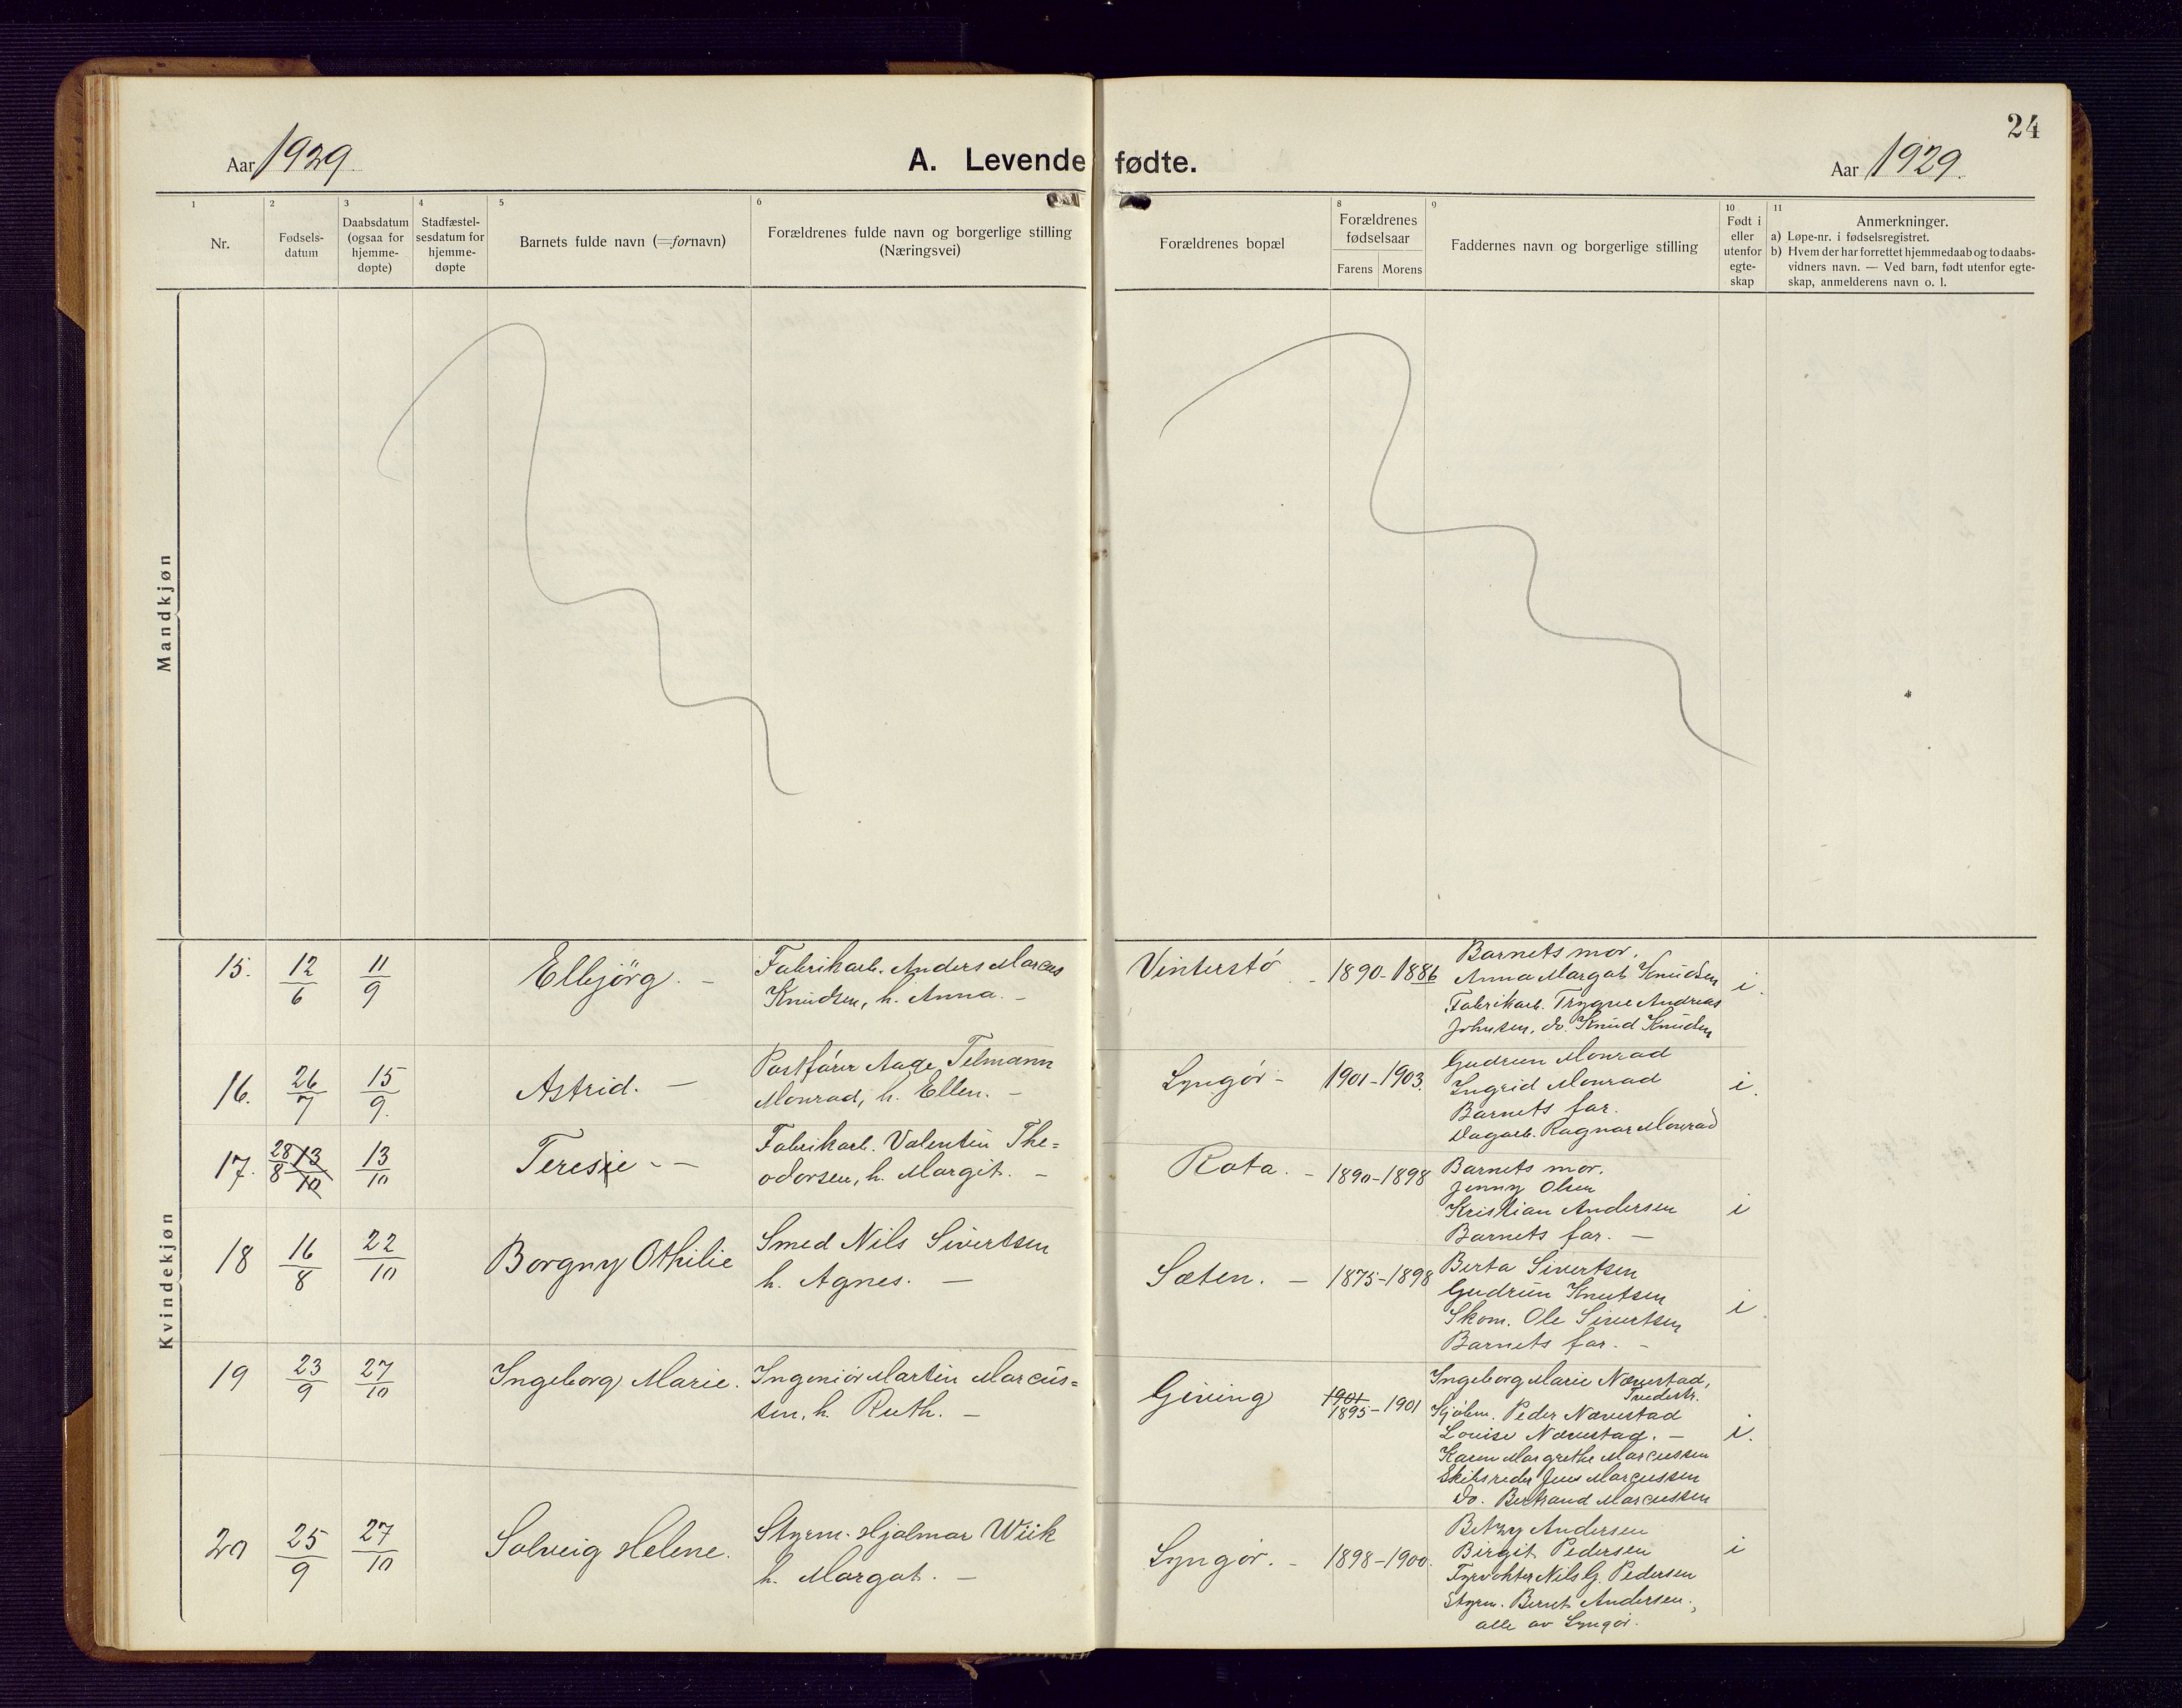 24
Aar 1929.
A. Levende fødte.
Aar 1929.
1
Nr.
2
Fødsels-
datum
3
Daabsdatum
(ogsaa for
hjemme-
døpte)
4
Stadfæstel-
sesdatum for
hjemme-
døpte
5
Barnets fulde navn (=fornavn)
6
Forældrenes fulde navn og borgerlige stilling
(Næringsvei)
Forældrenes bopæl
8
Forældrenes
fødselsaar
Farens Morens
9
Faddernes navn og borgerlige stilling
10
Født i
eller
utenfor
egte-
skap
11
Anmerkninger.
a) Løpe-nr. i fødselsregistret.
b) Hvem der har forrettet hjemmedaab og to daabs-
vidners navn. — Ved barn, født utenfor egte-
skap, anmelderens navn o. l.
Mandkjøn
Kvindekjøn
15. 12/6 11/9 Elbjörg. –
Fabrikarb. Anders Marcus
Knudsen, h. Anna. –
Vinterstø – 1890-1886
Barnets mor.
Anna Margat Knudsen
Fabrikarb. Trygve Andreas
Johnsen, do. Knud Knudsen
i.
16. 26/7 15/9. Astrid. –
Postfører Aage Telmann
Monrad, h. Ellen. –
Lyngör – 1901-1903.
Gudrun Monrad
Ingrid Monrad
Barnets far.
Dagarb. Ragnar Monrad
i.
17. 28/8 13/10 13/10 Teresie – –
Fabrikarb. Valentin The=
odorsen, h. Margit. –
Rota. – 1890-1898
Barnets mor.
Jenny Olsen
Kristian Andersen
Barnets far. –
i
18 16/8 22/10 Borgny Othilie
Smed Nils Sivertsen
h. Agnes. –
Sæten. – 1875-1898
Berta Sivertsen
Gudrun Knutsen
Skom. Ole Sivertsen
Barnets far. –
i.
19 23/9 27/10 Ingeborg Marie.
Ingeniör Martin Marcus=
sen, h. Ruth. –
Giving 1901
1895-1901
Ingeborg Marie Nævestad,
Tvedestr.
Kjøbm. Peder Nævestad
Louise Nævestad. –
Karen Margrethe Marcussen
Skibsreder Jens Marcussen
Do. Bertrand Marcussen
i.
20 25/9 27/10 Solveig Helene.
Styrm. Hjalmar Wiik
h. Margat. –
Lyngör. – 1898-1900.
Betzy Andersen
Birgit Pedersen
Fyrvokter Nils G. Pedersen
Styrm. Bernt Andersen.,
alle av Lyngör.
i